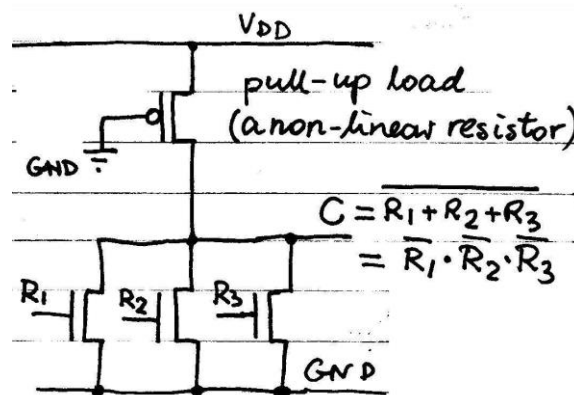 VDD
pull-up load
(a non-linear resistor)
GND
C = \overline{R₁ + R₂ + R₃}
= \overline{R₁} · \overline{R₂} · \overline{R₃}
R₁ R₂ R₃
GND